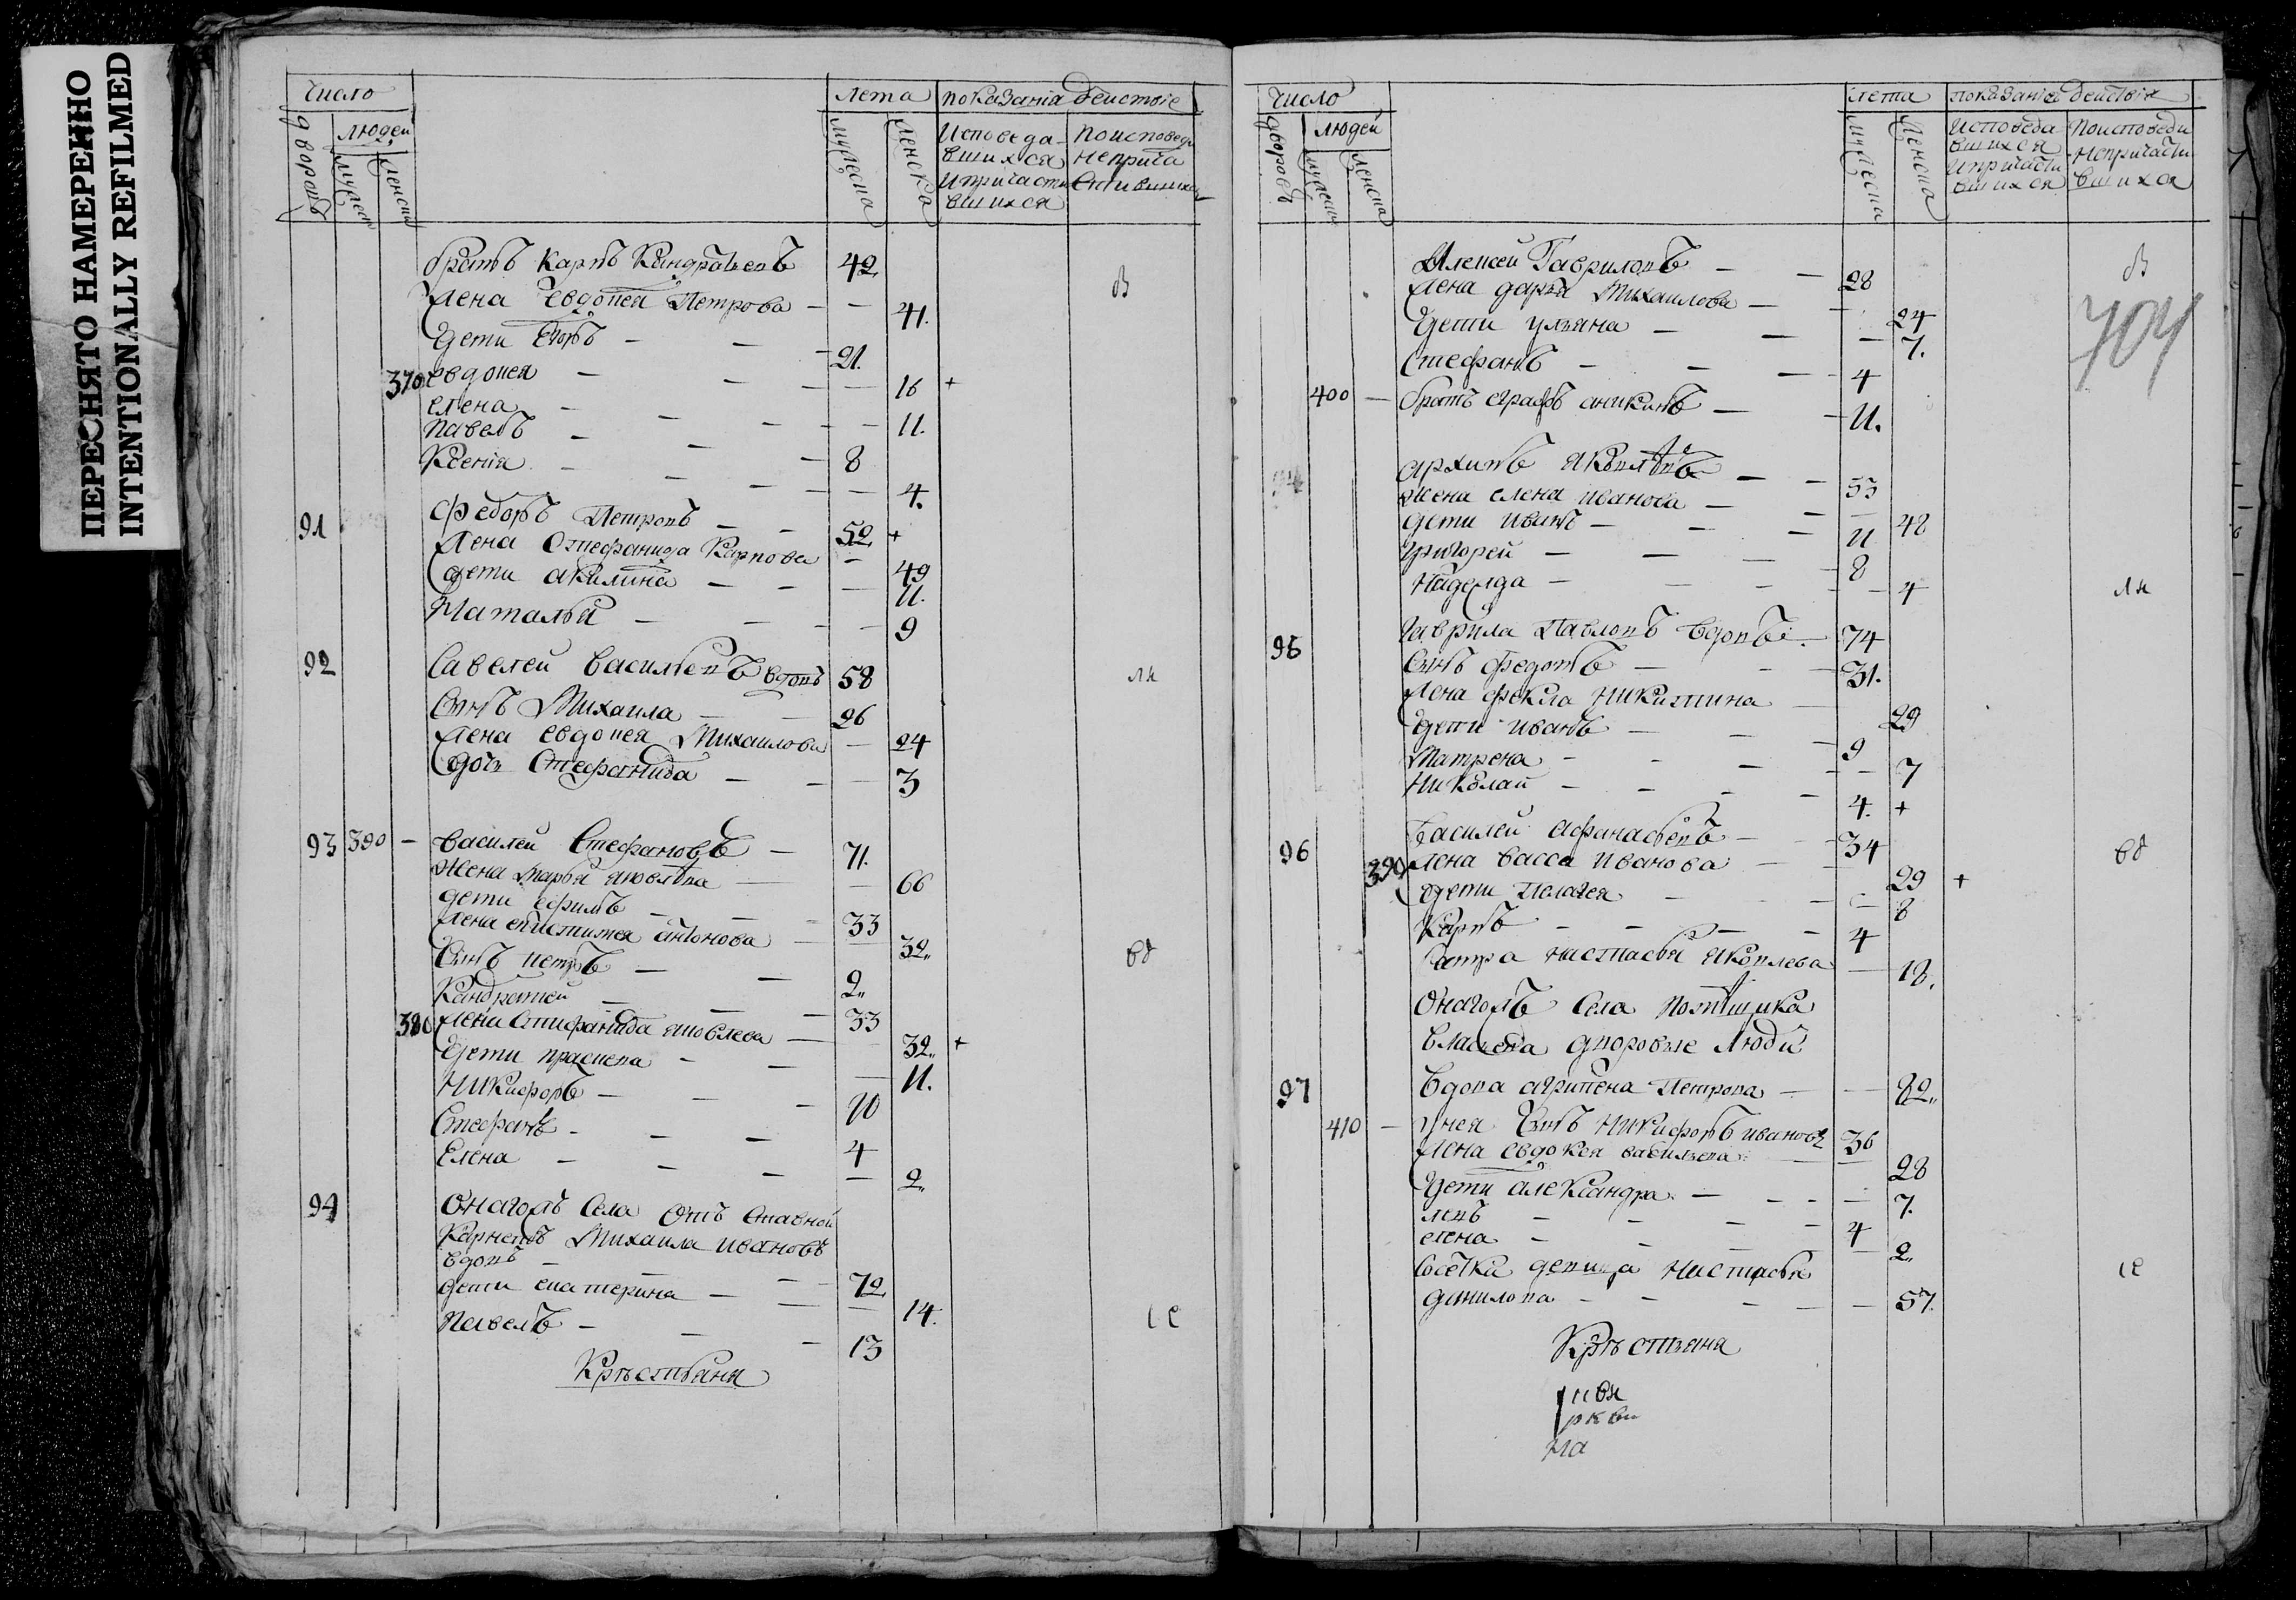 ПЕРЕСНЯТО НАМЕРЕННО
INTENTIONALLY REFILMED
Число
лета показанія действіе
дворовъ людей мужеска женска
Исповеда- вшихся и причасти вшихся
по исповеди неприча стившихся
братъ Карпъ Кандратьевъ 42
жена евдокея Петрова — — 41.
дети Егоръ — — 21.
370 евдокея — — 16 +
елена — — 11.
павелъ — — 8
Ксенія — — 4.
91 Федоръ Петровъ — — 52 +
жена Стефанида Карпова — 49
дети акилина — — 11.
Наталья — — 9
92 Савелей васильевъ вдовъ 58
Сынъ Михаила — — 26
жена евдокея Михаилова — 24
дочь Стефанида — — 3
93 390 — василей Стефановъ — 71.
Жена Марья яковлева — 66
дети ефимъ — — 33
жена епистимея антонова — 32
Сынъ петръ — — 2
Кандратей — — 33
380 жена Стифанида яковлева — 32 +
дети праскева — — 11.
Никифоръ — — 10
Стефанъ — — 4
Елена — — 2
94 Онагожъ Села отъ Ставной
Карнеевъ Михаила ивановъ
вдовъ — — 72
дети екатерина — — 14.
Павелъ — — 13
Крестьяня
Число
лета показаніе действіе
дворовъ людей мужеска женска
Исповеда вшихся и причасти вшихся
По исповеди непричасти вшихся
704
Алексей Гавриловъ — — 28
жена дарья Михаилова — 24
дети ульяна — — 7.
Стефанъ — — 4
400 — братъ аникинъ — 11.
архипъ яковлевъ — — 53
жена елена иванова — 48
дети иванъ — — 11
григорей — — 8
надежда — — 4
95 Гаврила Павловъ вдовъ — 74
Сынъ федотъ — — 31.
жена фекла никитина — 29
дети иванъ — — 9
Матрена — — 7
николай — — 4. +
96 Василей афанасьевъ — 34
390 жена васса иванова — 29 +
дети пелагея — — 8
Карпъ — — 4
Сестра настасья яковлева — 18.
Онагожъ Села помещика
власьева дворовые люди
97 Вдова агрипена Петрова — 82
410 — унея Сынъ никифоръ ивановъ 36
жена евдокея васильева — 28
дети александра — — 7.
левъ — — 4
елена — — 2
Соседка девица настасья
данилова — — 57.
Крестьяня